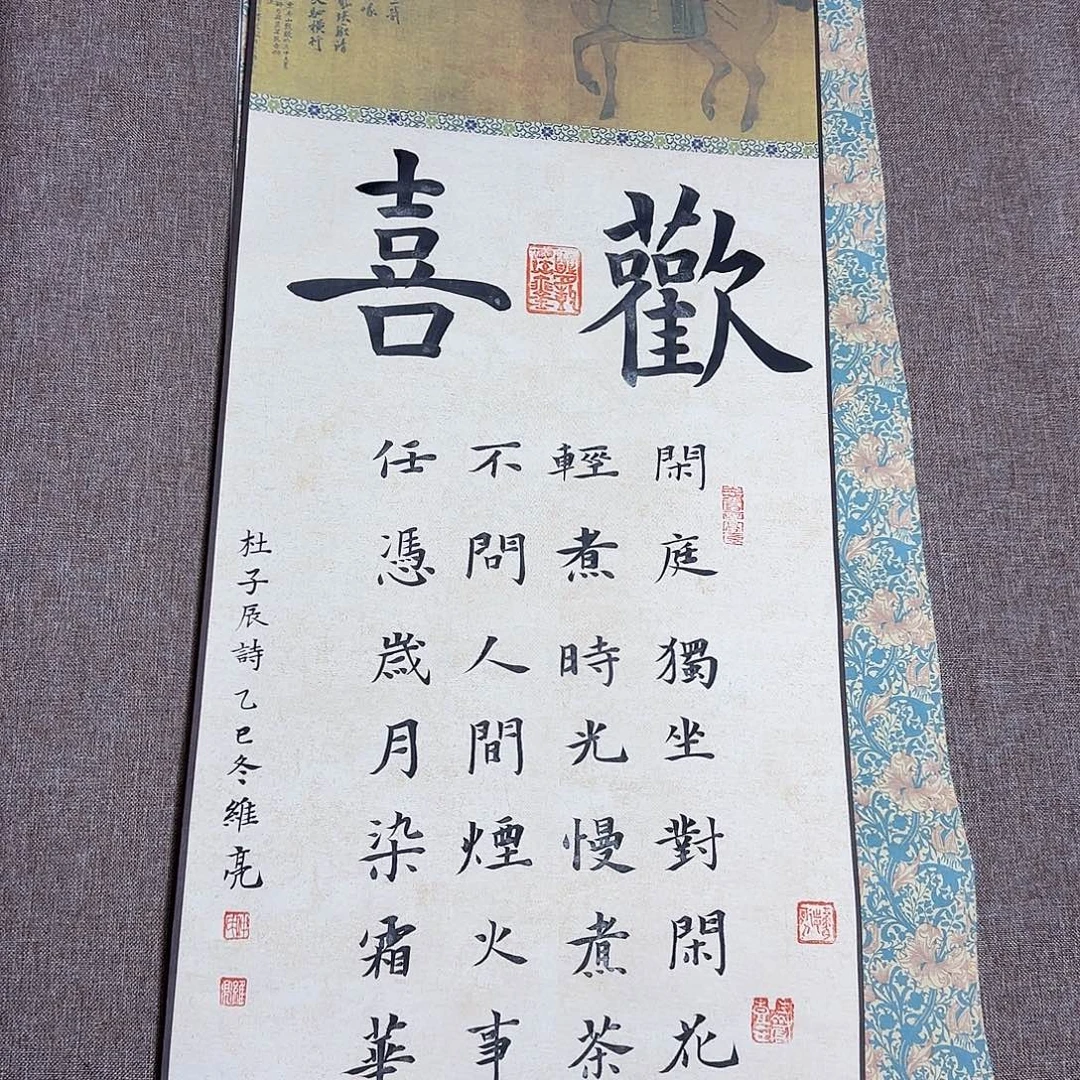 歡喜
閑庭獨坐對閑花
輕煮時光慢煮茶
不問人間煙火事
任憑歲月染霜華
杜子辰詩 乙巳冬維亮